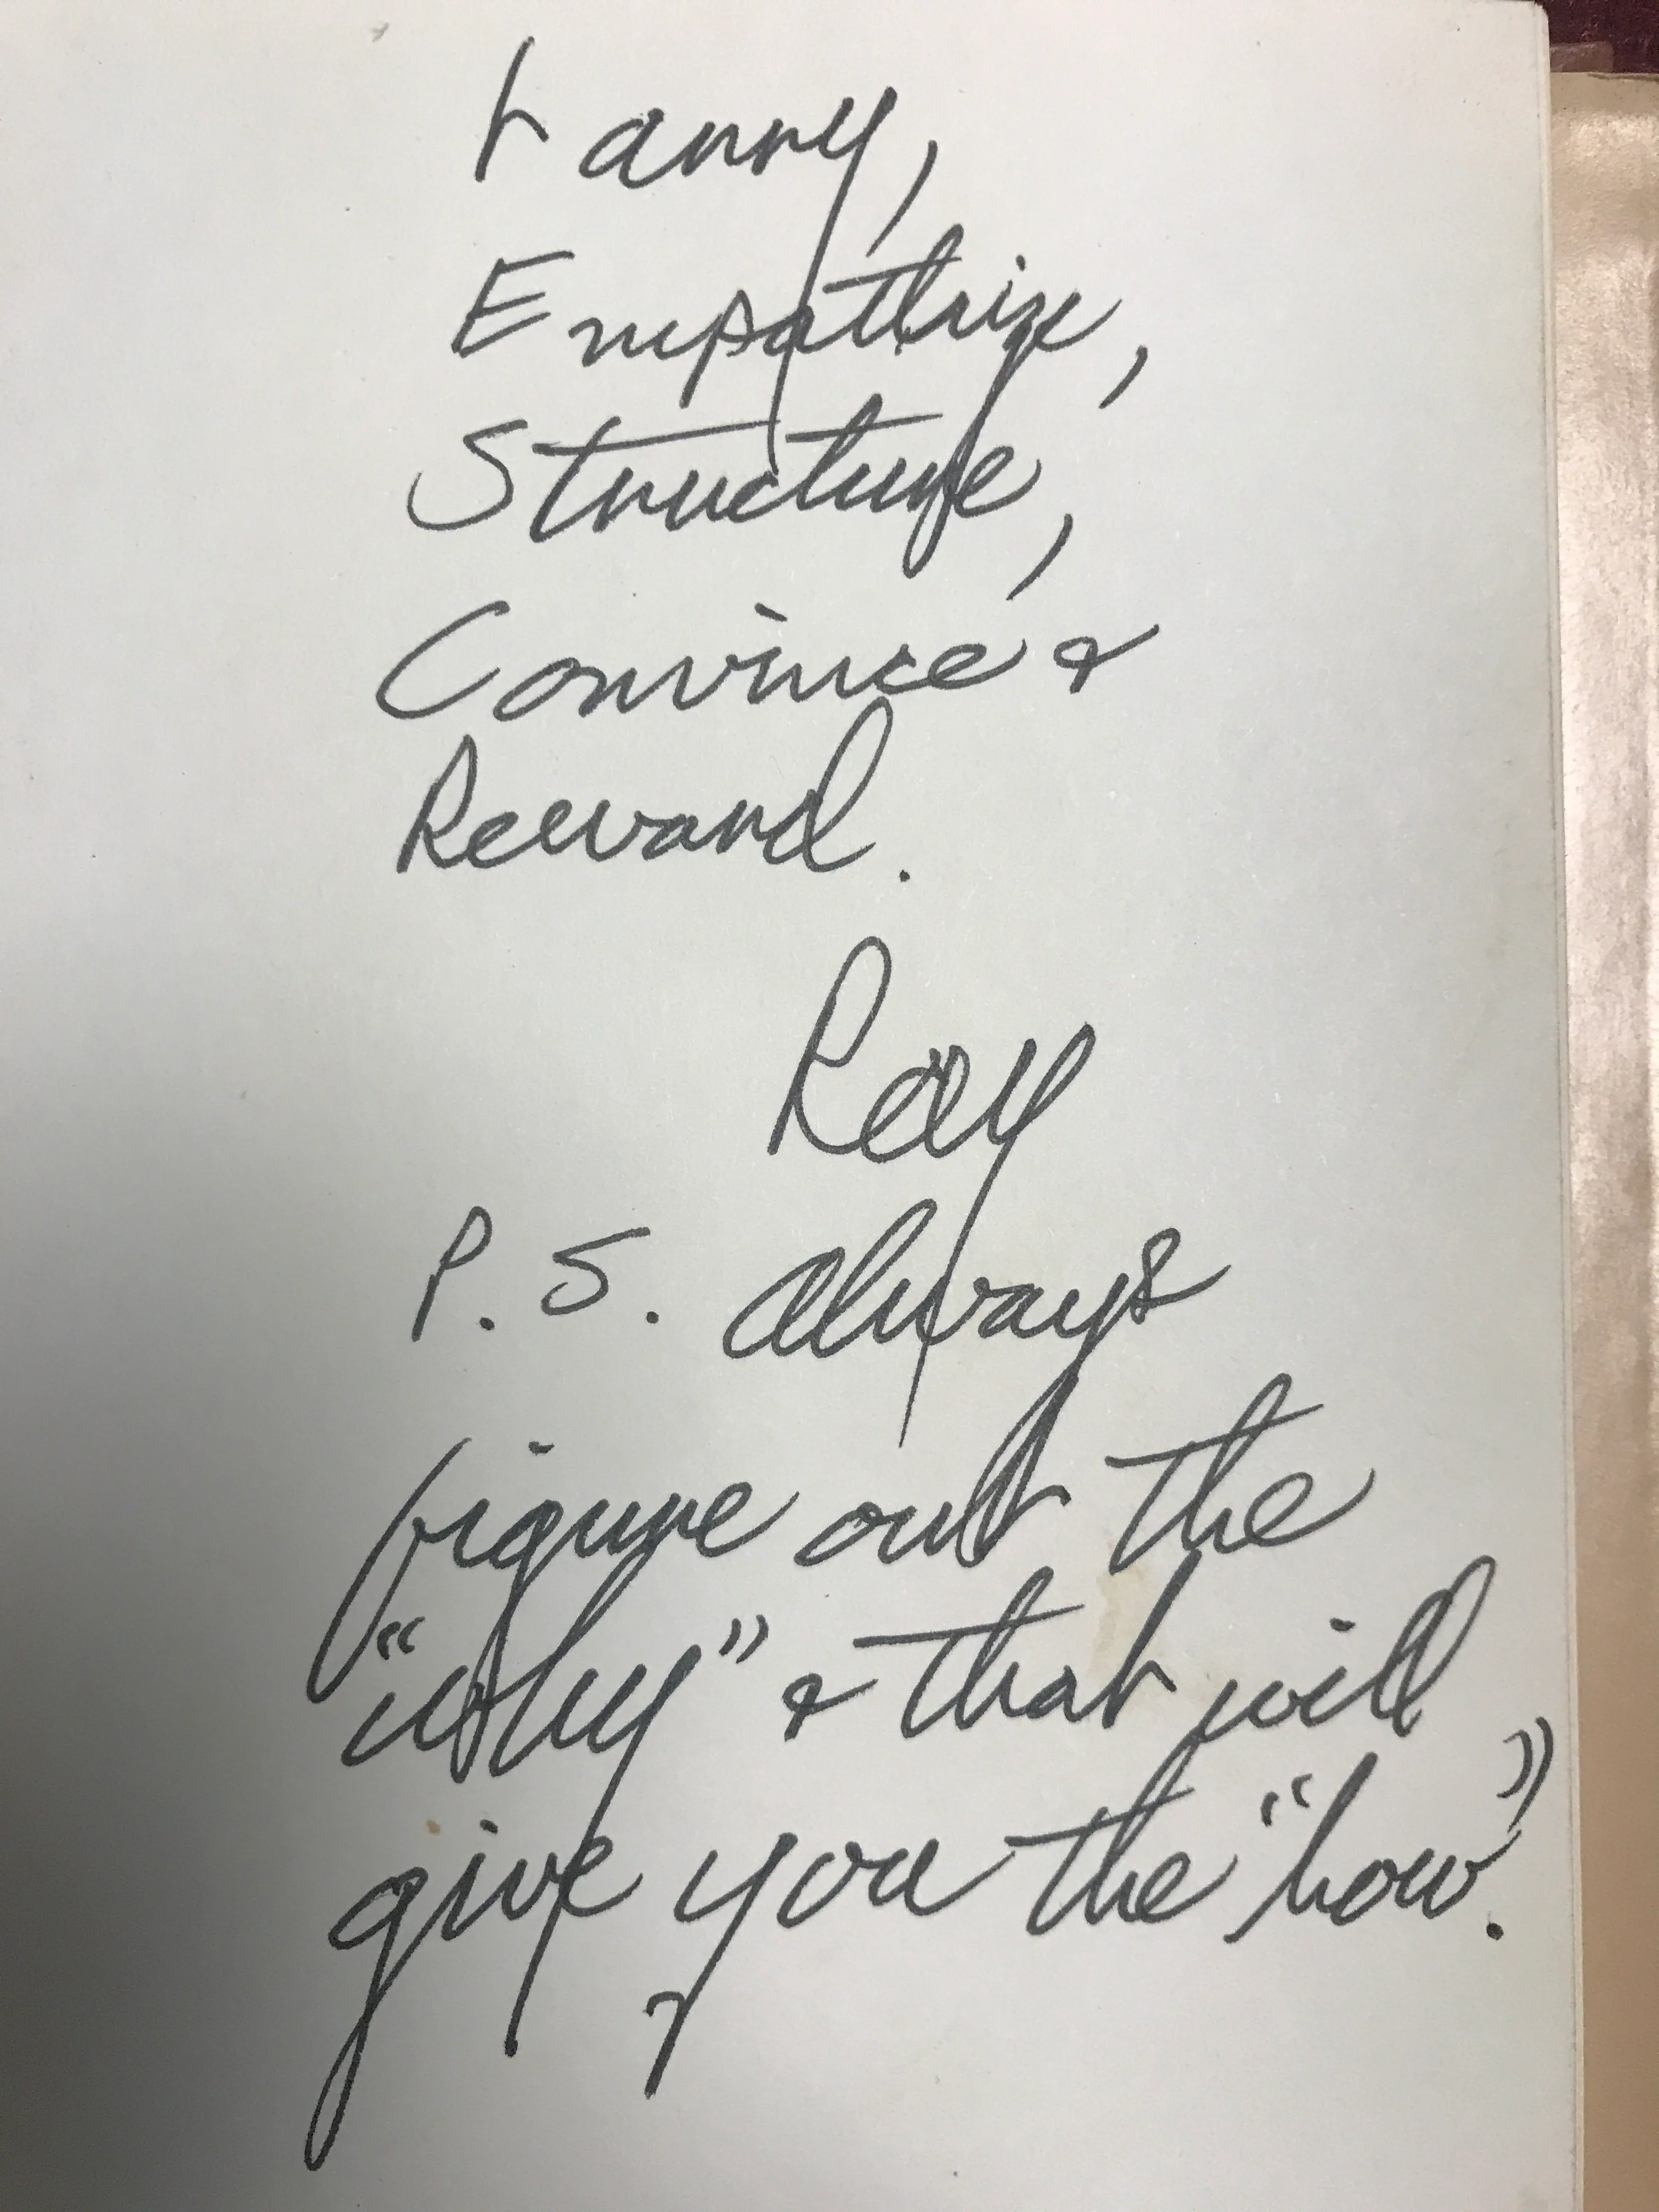 Empathize,
Structure,
Convince &
Reward.
Ray
P.S. Always
figure out the
"why" & that will
give you the "how."